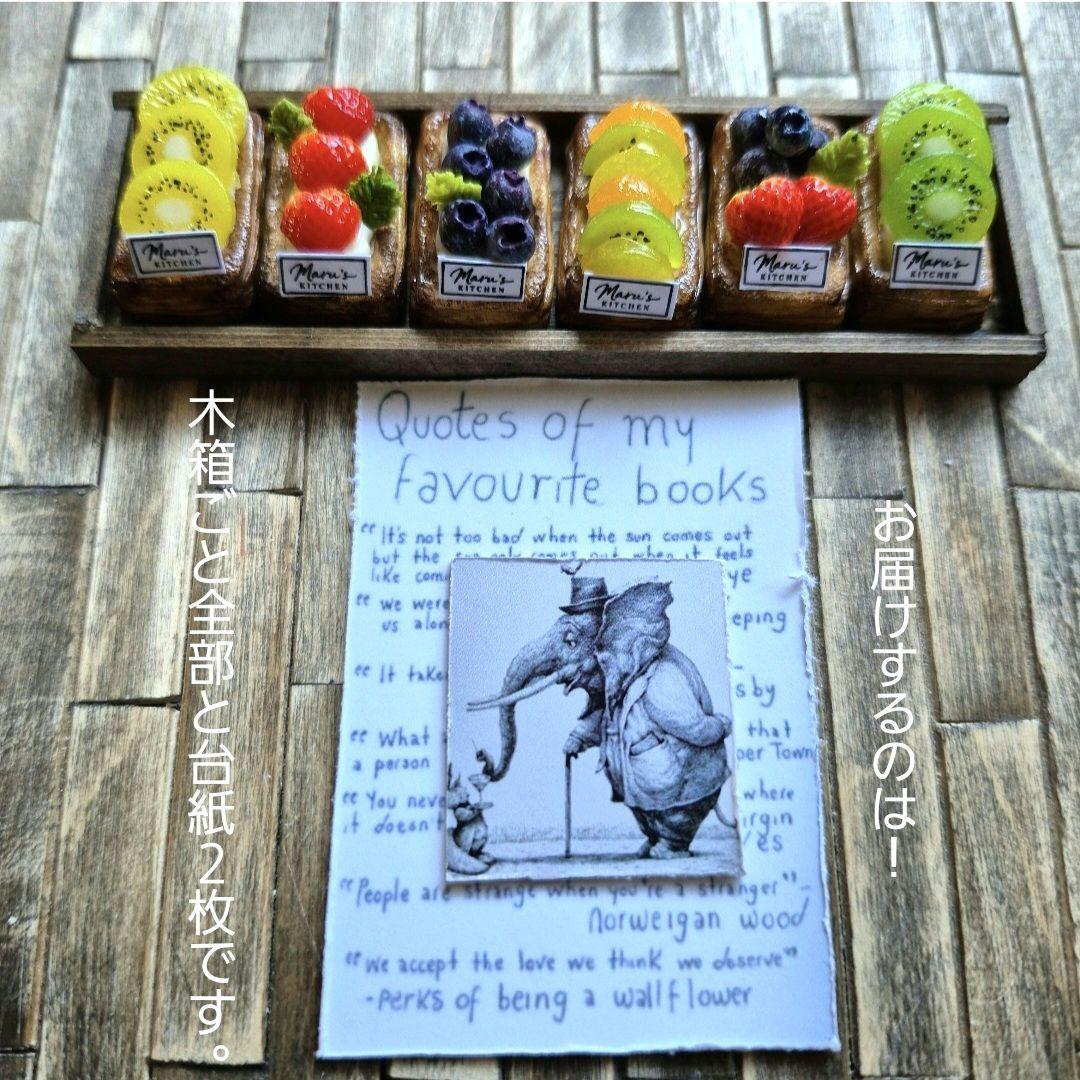 Maru's
KITCHEN
Maru's
KITCHEN
Maru's
KITCHEN
Maru's
KITCHEN
Maru's
KITCHEN
Maru's
KITCHEN
お届けするのは！
木箱ごと全部と台紙２枚です。
Quotes of my
favourite books
"It's not too bad when the sun comes out
but the sun only comes out when it feels
like com
ye
"we were
eping
us alon
"It take
sby
"What
that
a person
per Town
"You neve
where
it doesn't
irgin
es
"People are strange when you're a stranger"-
Norweigan wood
"we accept the love we think we deserve"
-perks of being a wallflower